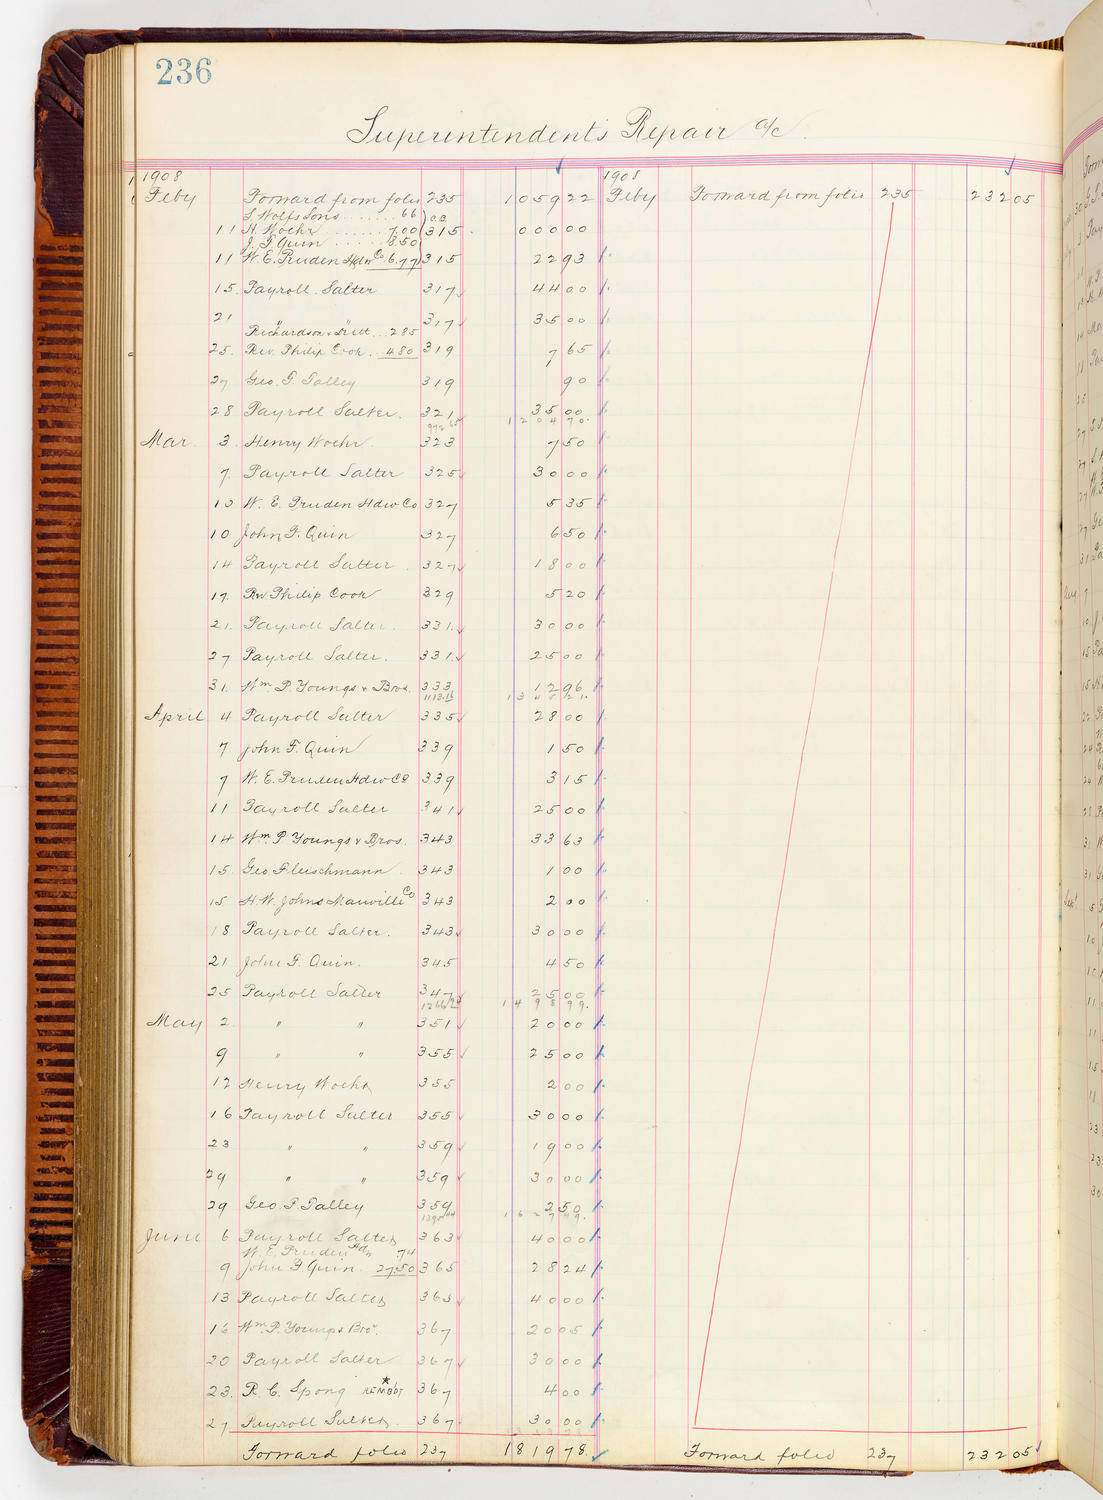 236
Superintendent's Repair a/c
1908
Feby Forward from folio 235 1059 22
S. Wolfs Sons 66 o.a.
11 H. Woehr 7.00 315 000 00
J. F. Quin 8.50
11 W. E. Pruden Hdw Co 6.77 315 22 93
15. Payroll Salter 317 44 00
21 " " 317 35 00
Richardson & 2 85
25. Rev. Philip Cook 4 80 319 7 65
27 Geo. F. Talley 319 90
28 Payroll Salter. 321 35 00
972 65 1204 70
Mar. 3. Henry Woehr. 323 7 50
7. Payroll Salter 325 30 00
10 W. E. Pruden Hdw Co 327 5 35
10 John F. Quin 327 6 50
14 Payroll Salter 327 18 00
17. Rev. Philip Cook 329 5 20
21. Payroll Salter 331. 30 00
27 Payroll Salter. 331. 25 00
31. Wm P. Youngs & Bros. 333 12 96
1345 21
April 4 Payroll Salter 335 28 00
7 John F. Quin 339 1 50
7 W. E. Pruden Hdw Co 339 3 15
11 Payroll Salter 341 25 00
14 Wm P Youngs & Bros. 343 33 63
15. Geo. Fleischmann 343 1 00
15 H. W. Johns Manville Co 343 2 00
18 Payroll Salter. 343 30 00
21 John F. Quin. 345 4 50
25 Payroll Salter 347 25 00
1498 99
May 2. " " 351 20 00
9 " " 355 25 00
12 Henry Woehr 355 2 00
16 Payroll Salter 355 30 00
23 " " 359 19 00
29 " " 359 30 00
29 Geo. F. Talley 359 2 50
1627 49
June 6 Payroll Salter 363 40 00
W. E. Pruden Hdw .74
9 John F. Quin. 27.50 365 28 24
13 Payroll Salter 365 40 00
16 Wm. P. Youngs & Bro. 367 20 05
20 Payroll Salter 367 30 00
23. R. C. Spong * REMBDT 367 4 00
27 Payroll Salter. 367 30 00
Forward folio 237 1819 78
1908
Feby Forward from folio 235 232 05
Forward folio 237 232 05